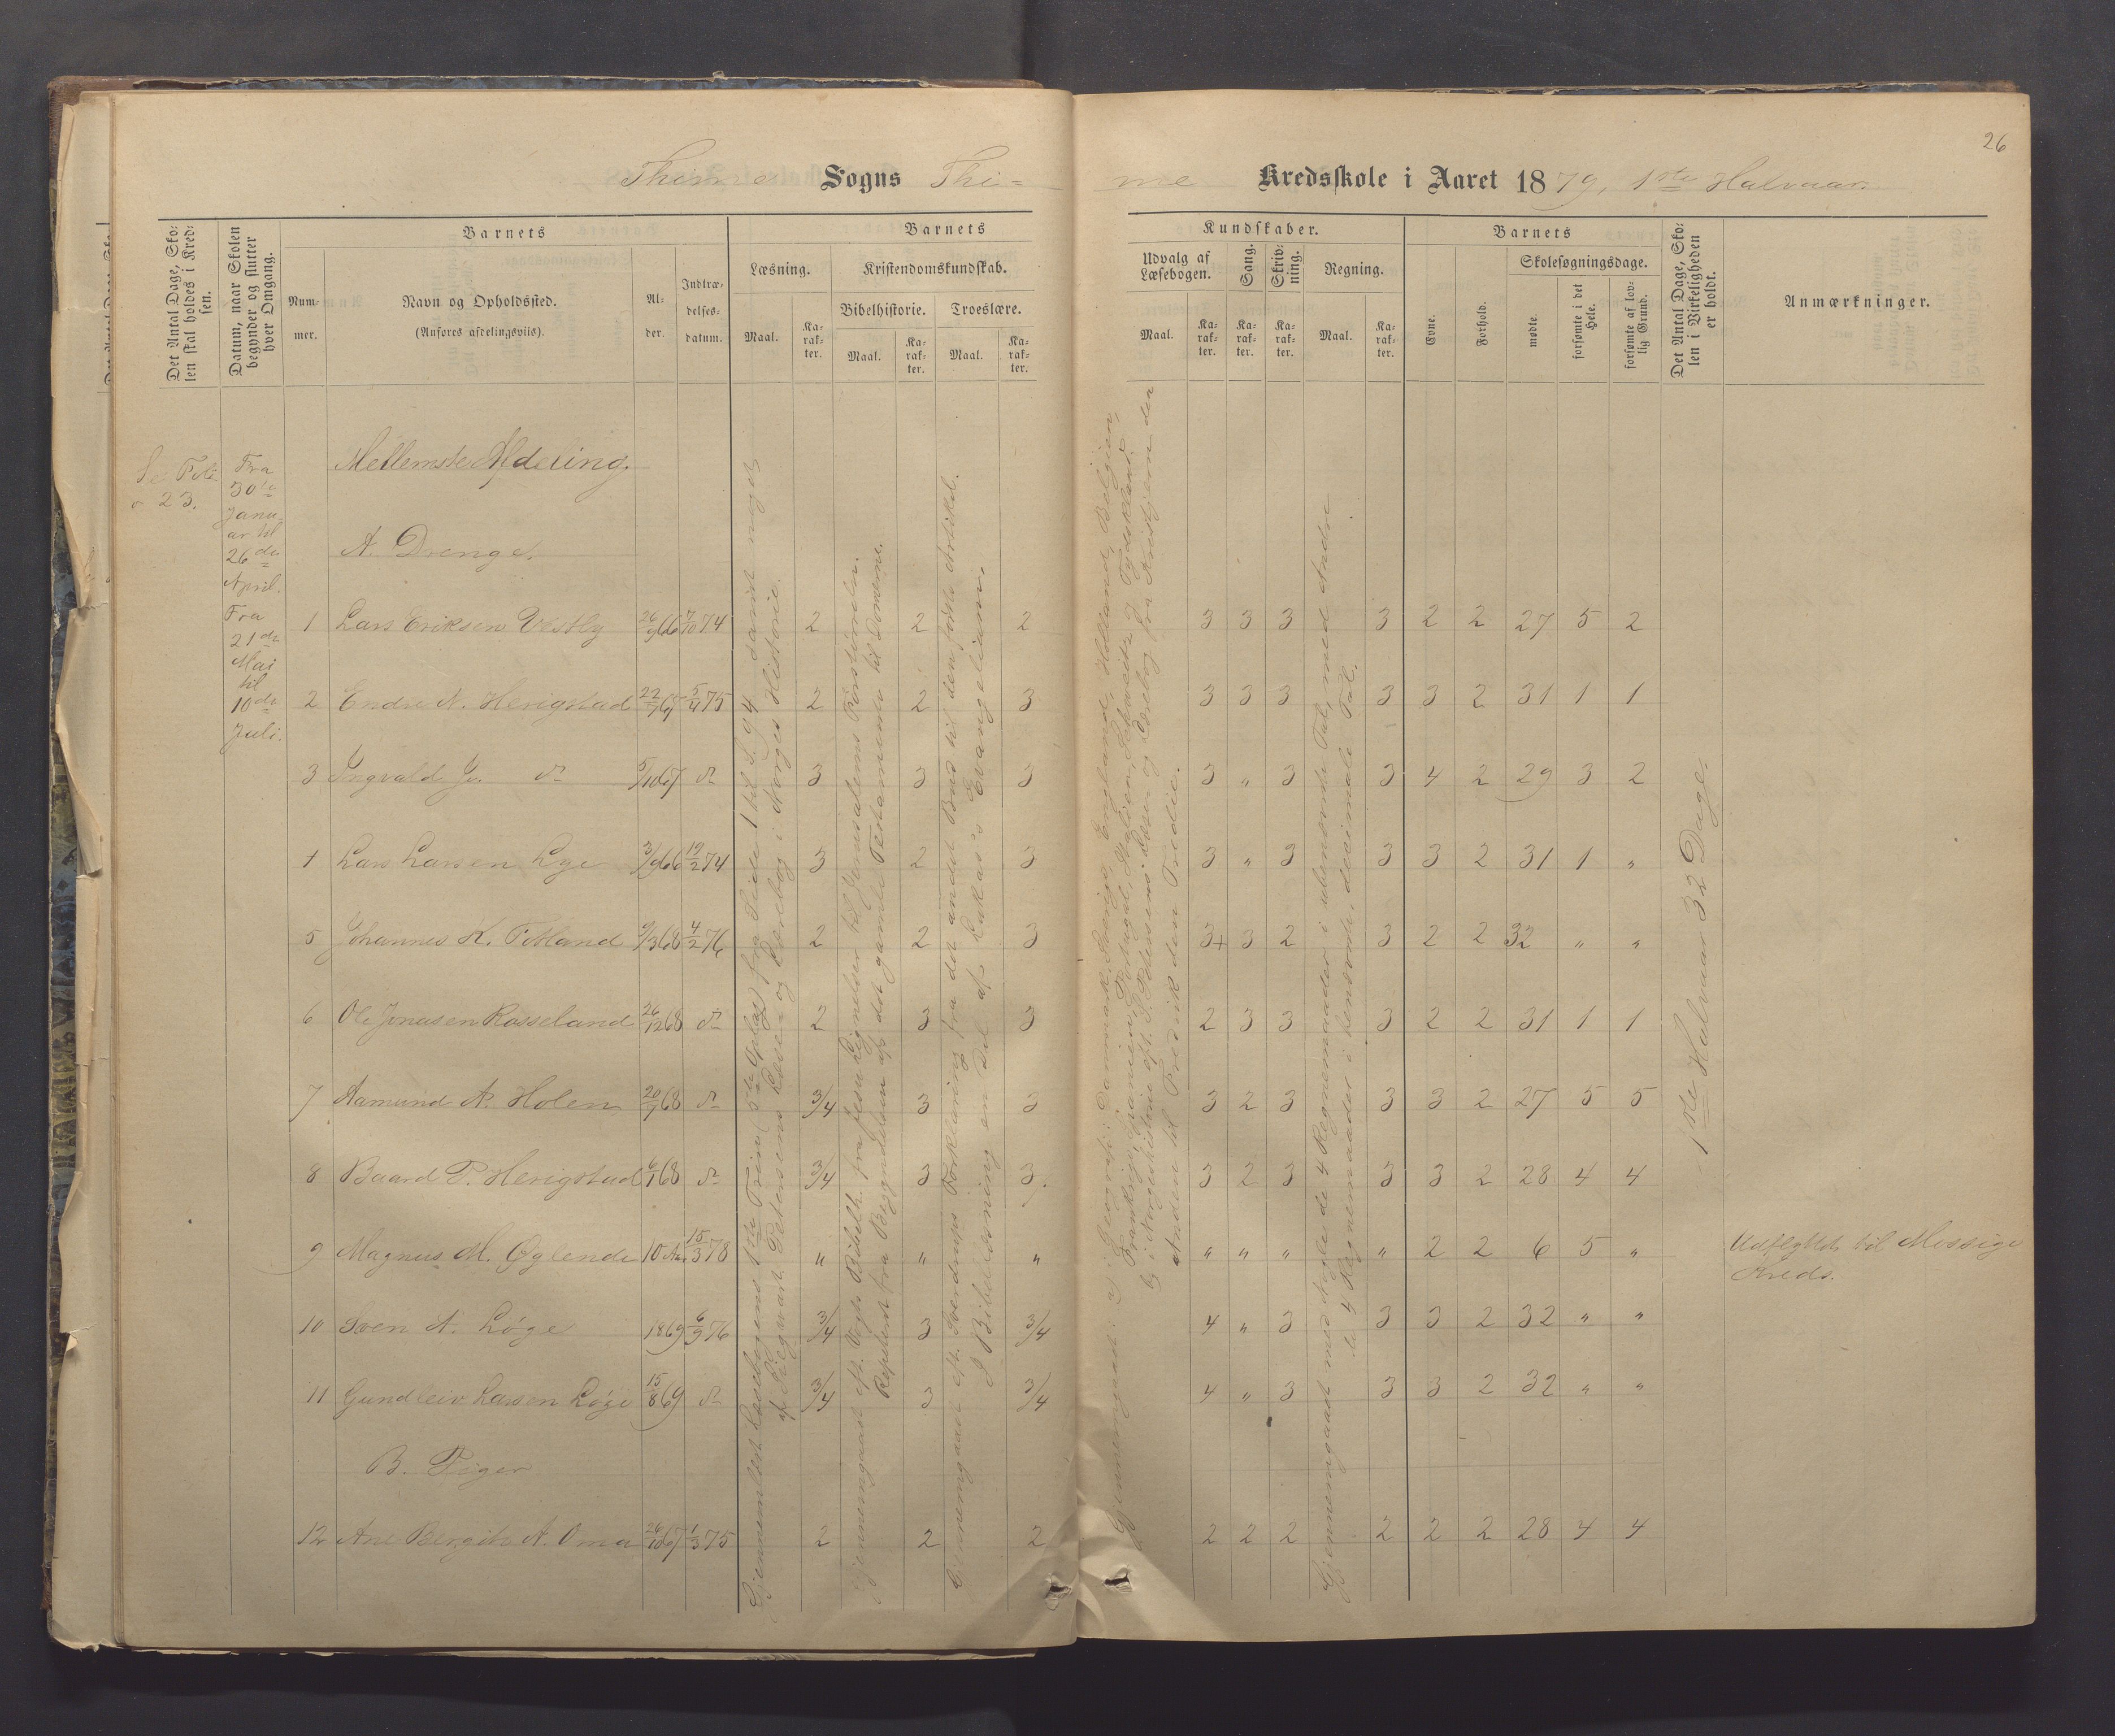 26
Thime Sogns Thi=
me Kredsskole i Aaret 1879, 1ste Halvaar.
Det Antal Dage, Sko-
len skal holdes i Kred-
sen.
Datum, naar Skolen
begynder og slutter
hver Omgang.
Barnets
Num-
mer.
Navn og Opholdssted.
(Anføres afdelingsviis).
Al-
der.
Indtræ-
delses-
datum.
Barnets
Læsning.
Maal.
Ka-
rak-
ter.
Kristendomskundskab.
Bibelhistorie.
Maal.
Ka-
rak-
ter.
Troeslære.
Maal.
Ka-
rak-
ter.
Kundskaber.
Udvalg af
Læsebogen.
Maal.
Ka-
rak-
ter.
Sang.
Ka-
rak-
ter.
Skriv-
ning.
Ka-
rak-
ter.
Regning.
Maal.
Ka-
rak-
ter.
Barnets
Evne.
Forhold.
Skolesøgningsdage.
mødte.
forsømte i det
Hele.
forsømte af lov-
lig Grund.
Det Antal Dage, Sko-
len i Virkeligheden
er holdt.
Anmærkninger.
Se Foli-
o 23.
Fra
30te
Janu-
ar til
26de
April.
Fra
21de
Mai
til
10de
Juli.
Mellemste Afdeling.
A. Drenge.
1 Lars Eriksen Vestly 26/9 66 7/10 74 2 2 2 3 3 3 3 2 2 27 5 2
2 Endre A. Herigstad 22/7 67 5/4 75 2 2 3 3 3 3 3 3 2 31 1 1
3 Ingvald J. do 5/10 67 do 3 3 3 3 " 3 3 4 2 29 3 2
4 Lars Larsen Lye 3/9 66 19/2 74 3 2 3 3 " 3 3 3 2 31 1 "
5 Johannes K. Fotland 9/3 68 4/2 76 2 2 3 3+ 3 2 3 2 2 32 " "
6 Ole Jonasen Rosseland 26/12 68 do 2 3 3 2 3 3 3 2 2 31 1 1
7 Aamund A. Holen 20/7 68 do 3/4 3 3 3 2 3 3 3 2 27 5 5
8 Baard P. Herigstad 6/1 68 do 3/4 3 3. 3 2 3 3 3 2 28 4 4
9 Magnus M. Øglende 10 Aar 15/3 78 " " " " " " " 2 2 6 5 " Udflyttet til Mossige
Kreds.
10 Sven A. Løge 1869 6/9 76 3/4 3 3/4 4 " 3 3 3 2 32 " "
11 Gundleiv Larsen Løge 15/8 69 do 3/4 3 3/4 4 " 3 3 3 2 32 " "
B. Piger
12 Ane Bergite A. Oma 26/10 67 1/3 75 2 2 2 2 2 2 2 2 2 28 4 4
Gjennemlæst Læsebogens 1ste Trin (5te Oplag) fra Side 1 til S. 94 samt noget
af Siegwart Petersens Læse og Lærebog i Norges Historie.
Gjennemgaaet eft. Vogts Bibelh. fra Jesu Lignelser til Jerusalems Forstyrrelse.
Repeteret fra Begyndelsen af det gamle Testamente til Dommerne.
Gjennemgaaet eft. Sverdrups Forklaring fra det andet Bud til den første Artikel.
I Bibellæsning en Del af Lukas's Evangelium.
Gjennemgaaet: a) I Geografi: Danmark, Sverige, England, Holland, Belgien,
Frankrige, Spanien, Portugal, Italien, Schweitz og Tydskland.
b) i Norgeshistorie eft. S. Petersens Læse og Lærebog fra Kristjern den
Anden til Fredrik den Tredie.
Gjennemgaaet med Nogle de 4 Regnemaader i ubenævnte Tal, med Andre
de 4 Regnemaader i benævnte, decimale Tal.
1ste Halvaar 32 Dage.